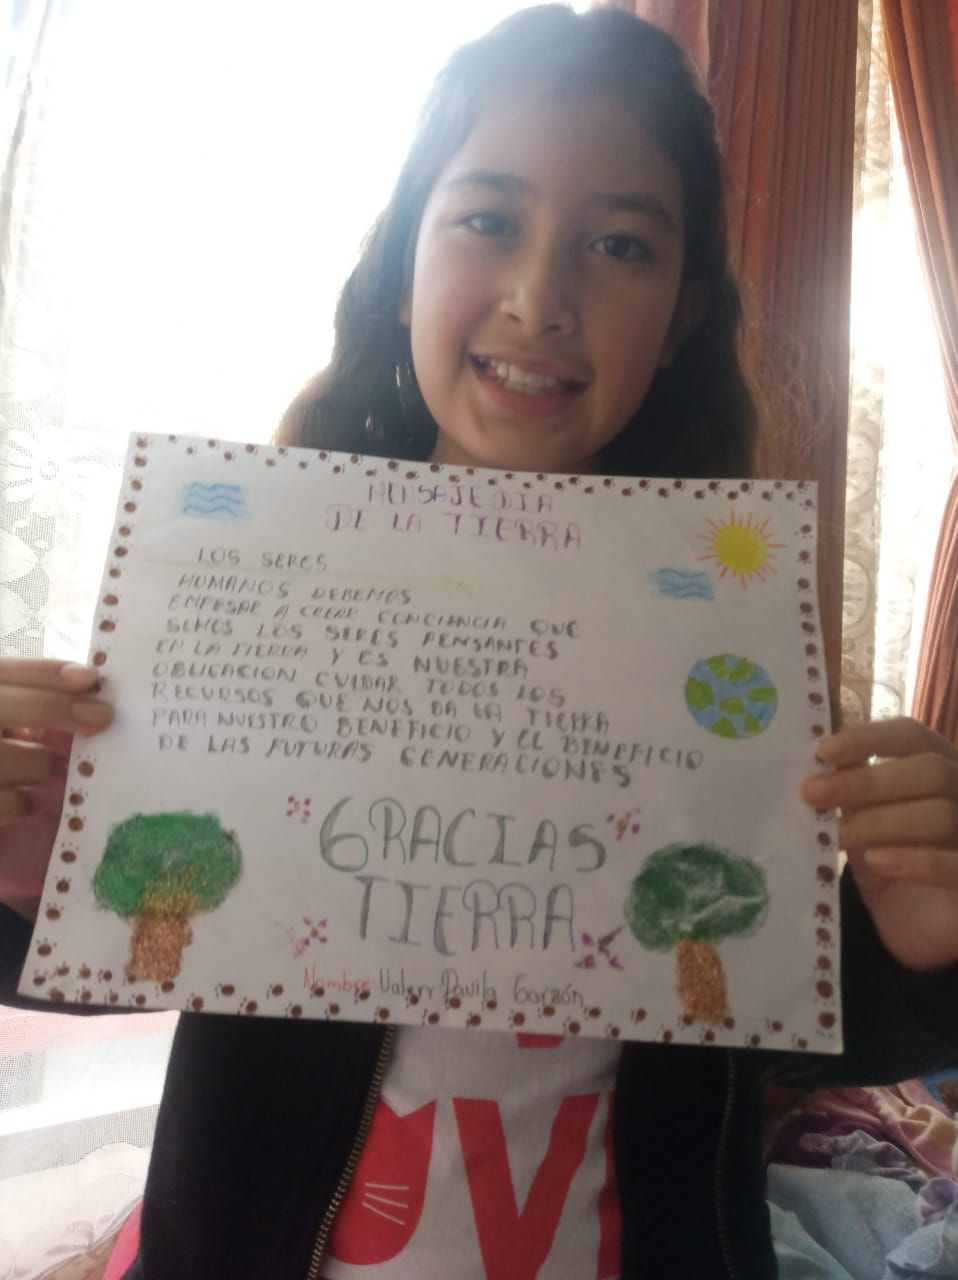 MENSAJE DIA
DE LA TIERRA
LOS SERES
HUMANOS DEBEMOS
EMPESAR A CREAR CONCIENCIA QUE
SOMOS LOS SERES PENSANTES
EN LA TIERRA Y ES NUESTRA
OBLIGACION CUIDAR TODOS LOS
RECURSOS QUE NOS DA LA TIERRA
PARA NUESTRO BENEFICIO Y EL BENEFICIO
DE LAS FUTURAS GENERACIONES
GRACIAS
TIERRA
Nombre: Valery Davila Garzón
OVE